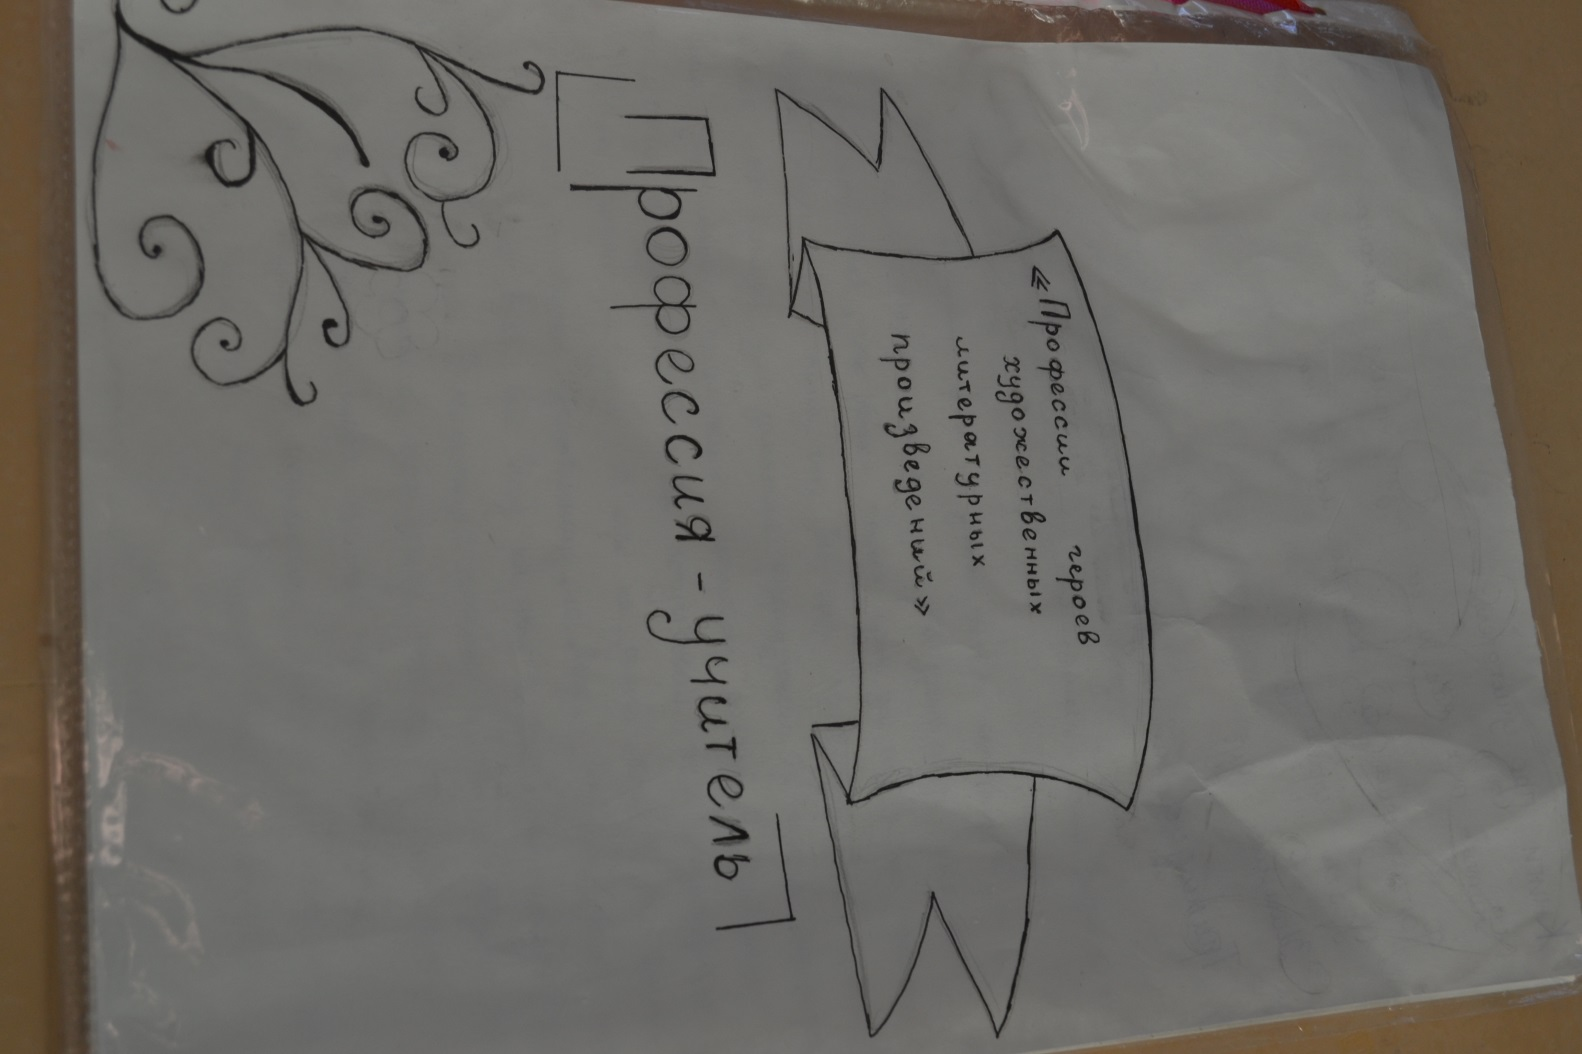 «Профессии героев
художественных
литературных
произведений»
Профессия - учитель